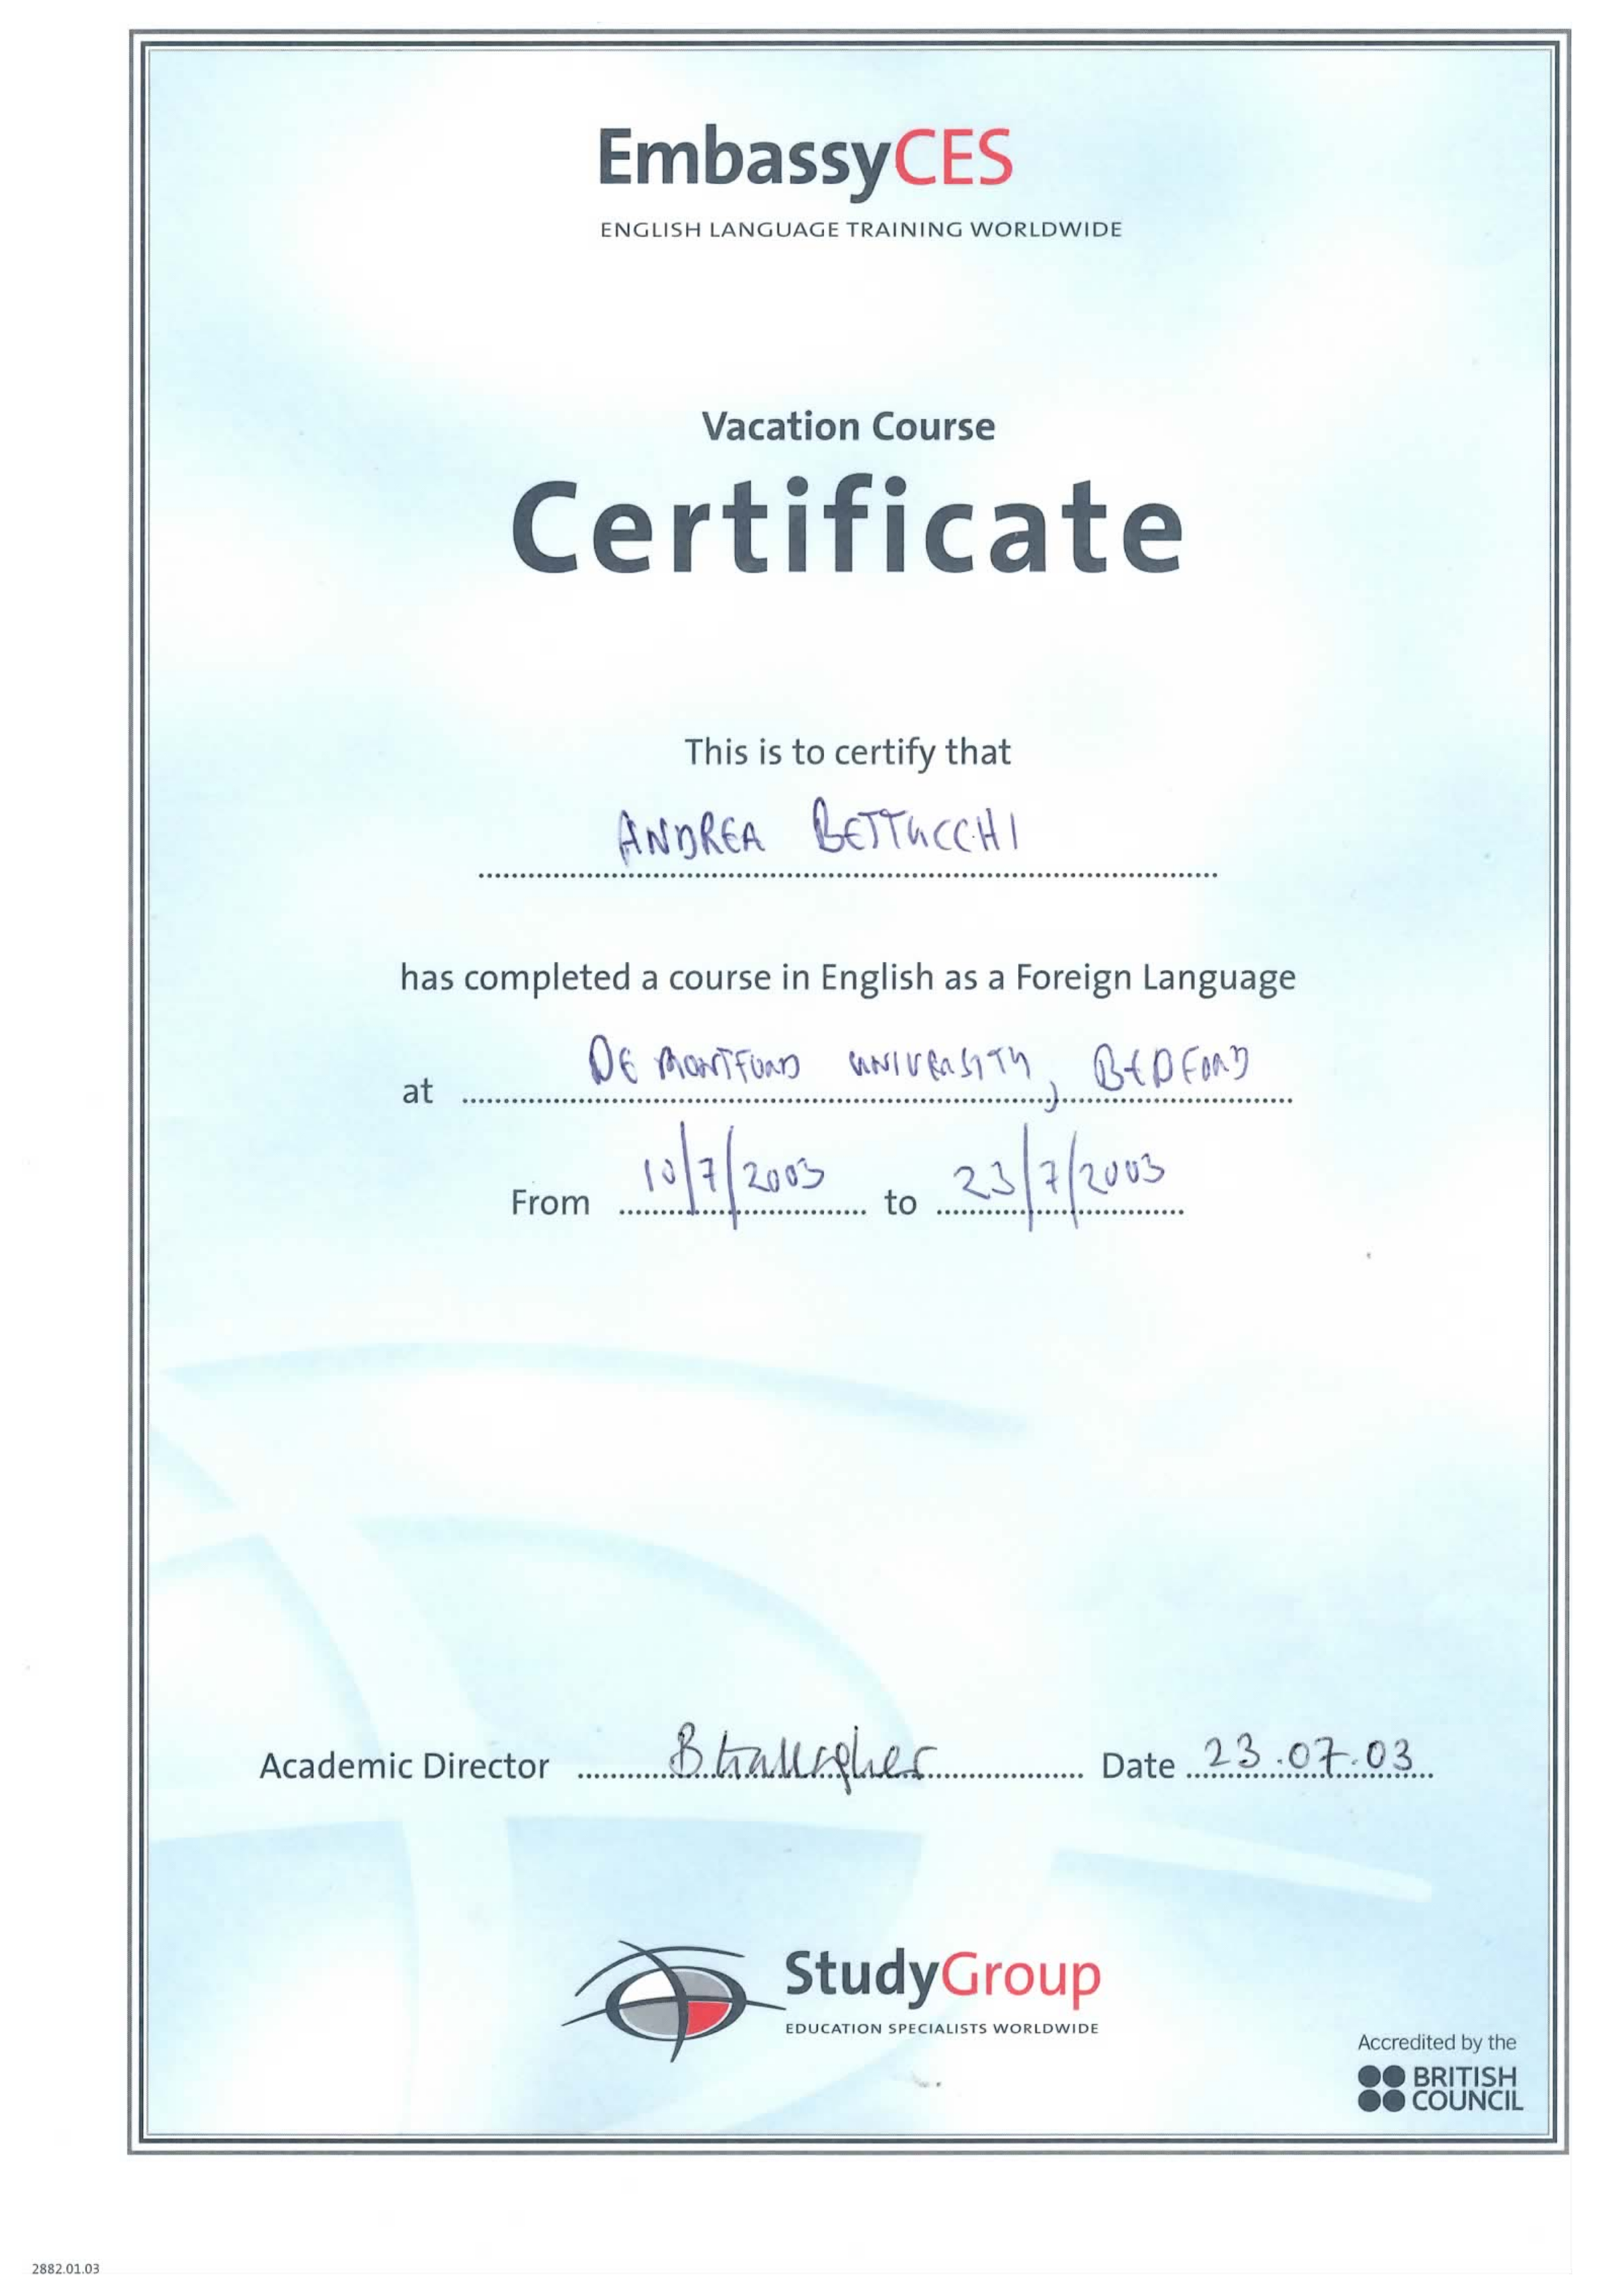 EmbassyCES
ENGLISH LANGUAGE TRAINING WORLDWIDE
Vacation Course
Certificate
This is to certify that
ANDREA BETTUCCHI
has completed a course in English as a Foreign Language
at DE MONTFORD UNIVERSITY, BEDFORD
From 10/7/2003 to 23/7/2003
Academic Director Date 23.07.03
StudyGroup
EDUCATION SPECIALISTS WORLDWIDE
Accredited by the
BRITISH
COUNCIL
2882.01.03